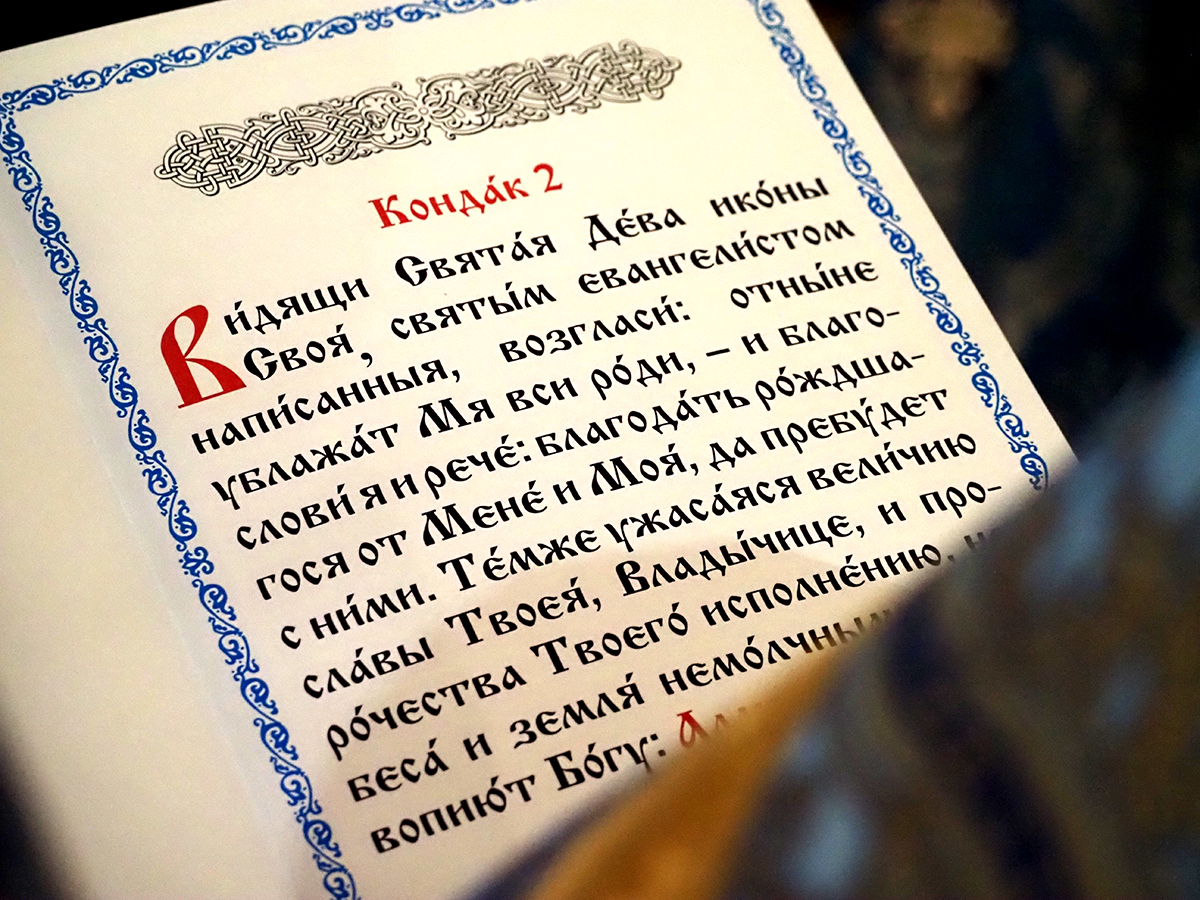 Конда́к 2
Ви́дящи Свята́я Де́ва ико́ны
Своя́, святы́м евангели́стом
напи́санныя, возгласи́: отны́не
ублажа́т Мя вси ро́ди, – и благо-
слови́ я и рече́: благода́ть ро́ждша-
гося от Мене́ и Моя́, да пребу́дет
с ни́ми. Те́мже ужаса́яся вели́чию
сла́вы Твоея́, Влады́чице, и про-
ро́чества Твоего́ исполне́нию,
беса́ и земля́ немо́лчны
вопию́т Бо́гу: